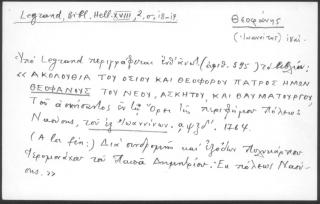 Legrand, Bibl. Hell. XVIII, 2, σ. 18-19.
Θεοφάνης
(Ἰωαννίτης)
Ὑπὸ Legrand περιγράφεται (ἀριθ. 595) τὸ βιβλίον:
« ΑΚΟΛΟΥΘΙΑ ΤΟΥ ΟΣΙΟΥ ΚΑΙ ΘΕΟΦΟΡΟΥ ΠΑΤΡΟΣ ΗΜΩΝ
ΘΕΟΦΑΝΟΥΣ ΤΟΥ ΝΕΟΥ, ΑΣΚΗΤΟΥ ΚΑΙ ΘΑΥΜΑΤΟΥΡΓΟΥ
Τοῦ ἀσκήσαντος ἐν τῷ Ὄρει τῆς περιφήμου Πόλεως
Ναούσης, τοῦ ἐξ Ἰωαννίνων. αψξδʹ. 1764.
(A la fin:) Διὰ συνδρομῆς καὶ ἐξόδων
Ἱερομονάχου τοῦ Παπᾶ Δημητρίου. Ἐκ πόλεως Ναού-
σης. »